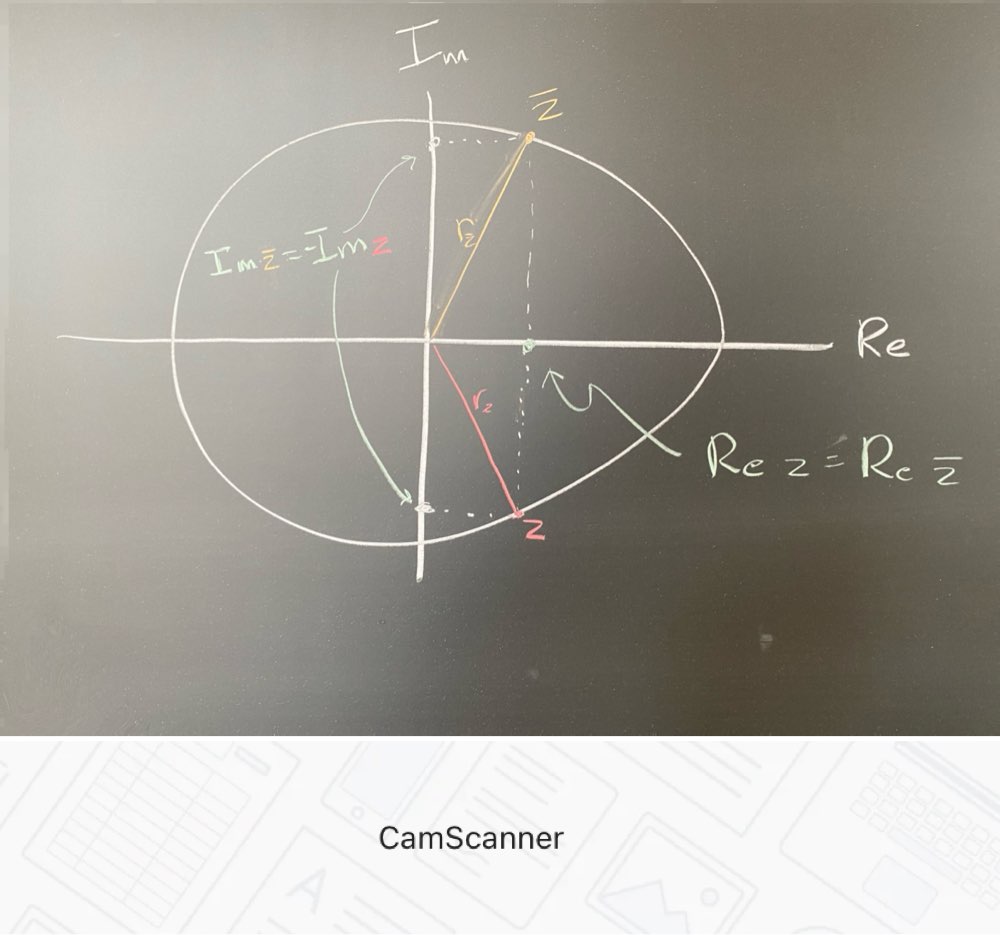 Im
z̅
r_z̅
Im z̅ = -Im z
Re
r_z
Re z = Re z̅
z
CamScanner